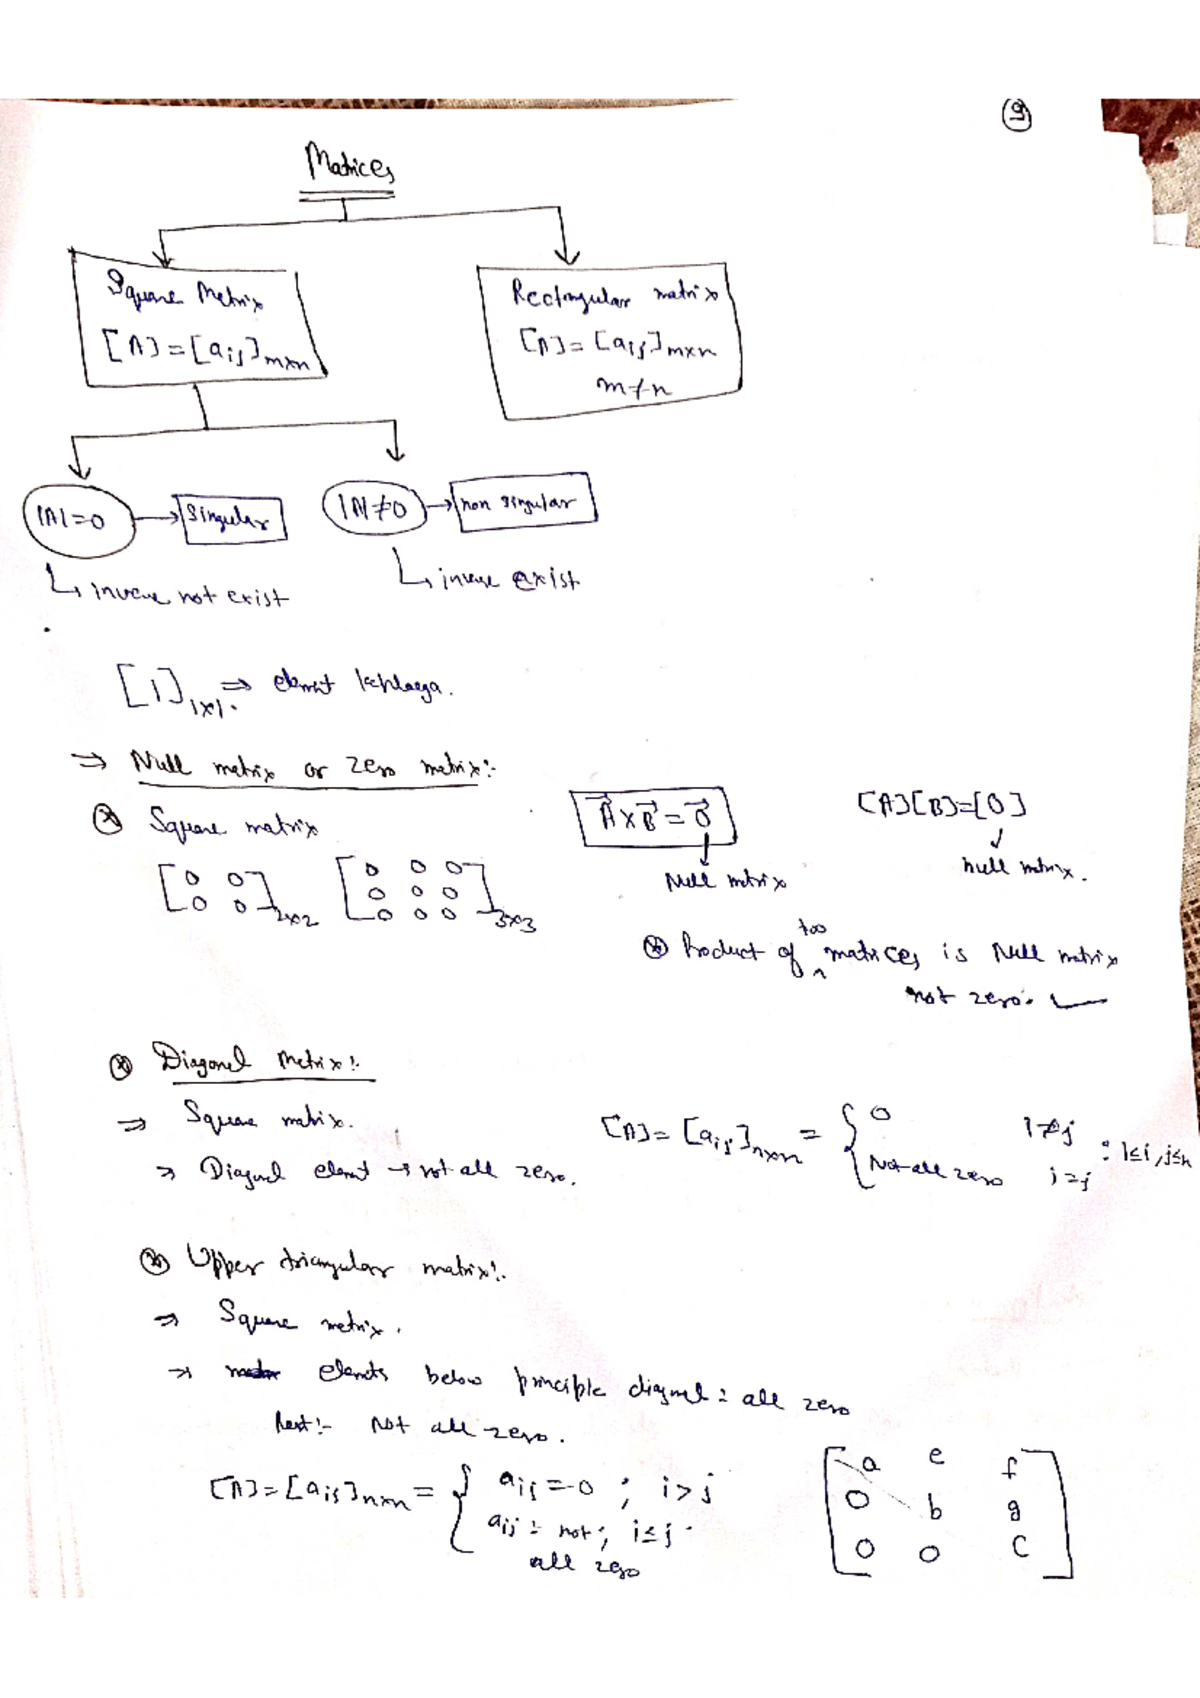 9
Matrices
Square Metrix
[A] = [aij]m×n
Rectangular matrix
[A] = [aij]m×n
m≠n
|A|=0 → Singular
|A|≠0 → non singular
↳ inverse not exist
↳ inverse exist
[1]1×1. ⇒ elemnt kehlaega.
⇒ Null matrix or zero matrix:-
Square matrix
[0 0
0 0]2×2
[0 0 0
0 0 0
0 0 0]3×3
A⃗ × B⃗ = 0⃗
Null mtrix
[A][B]=[0]
null mtrix.
Product of too matrices is Null matrix
not zero.
Diagonal Metrix:-
⇒ Square matrix.
⇒ Diagonal elemt → not all zero.
[A] = [aij]n×n = { 0 i≠j
Not all zero i=j : 1≤i,j≤n
Upper triangular matrix:-
⇒ Square metrix.
⇒ elemnts below principle diagonal = all zero
Rest:- Not all zero.
[A] = [aij]n×n = { aij = 0 ; i>j
aij = not ; i≤j
all zero
[a e f
0 b g
0 0 c]